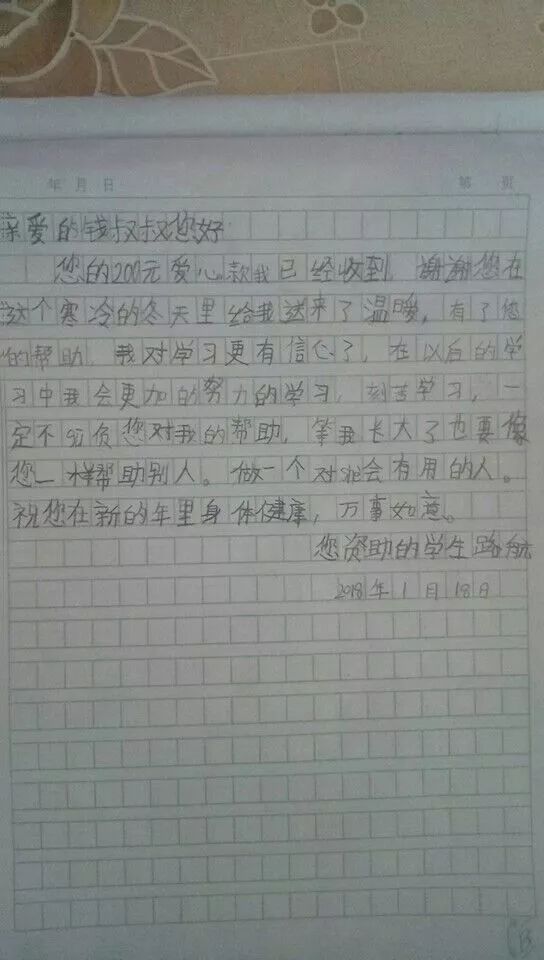 年 月 日 第 页
亲爱的钱叔叔您好
您的200元爱心款我已经收到,谢谢您在
这个寒冷的冬天里给我送来了温暖,有了您
的帮助,我对学习更有信心了,在以后的学
习中我会更加的努力的学习,刻苦学习,一
定不辜负您对我的帮助,等我长大了也要像
您一样帮助别人。做一个对社会有用的人。
祝您在新的年里身体健康,万事如意。
您资助的学生路航
2018年1月18日